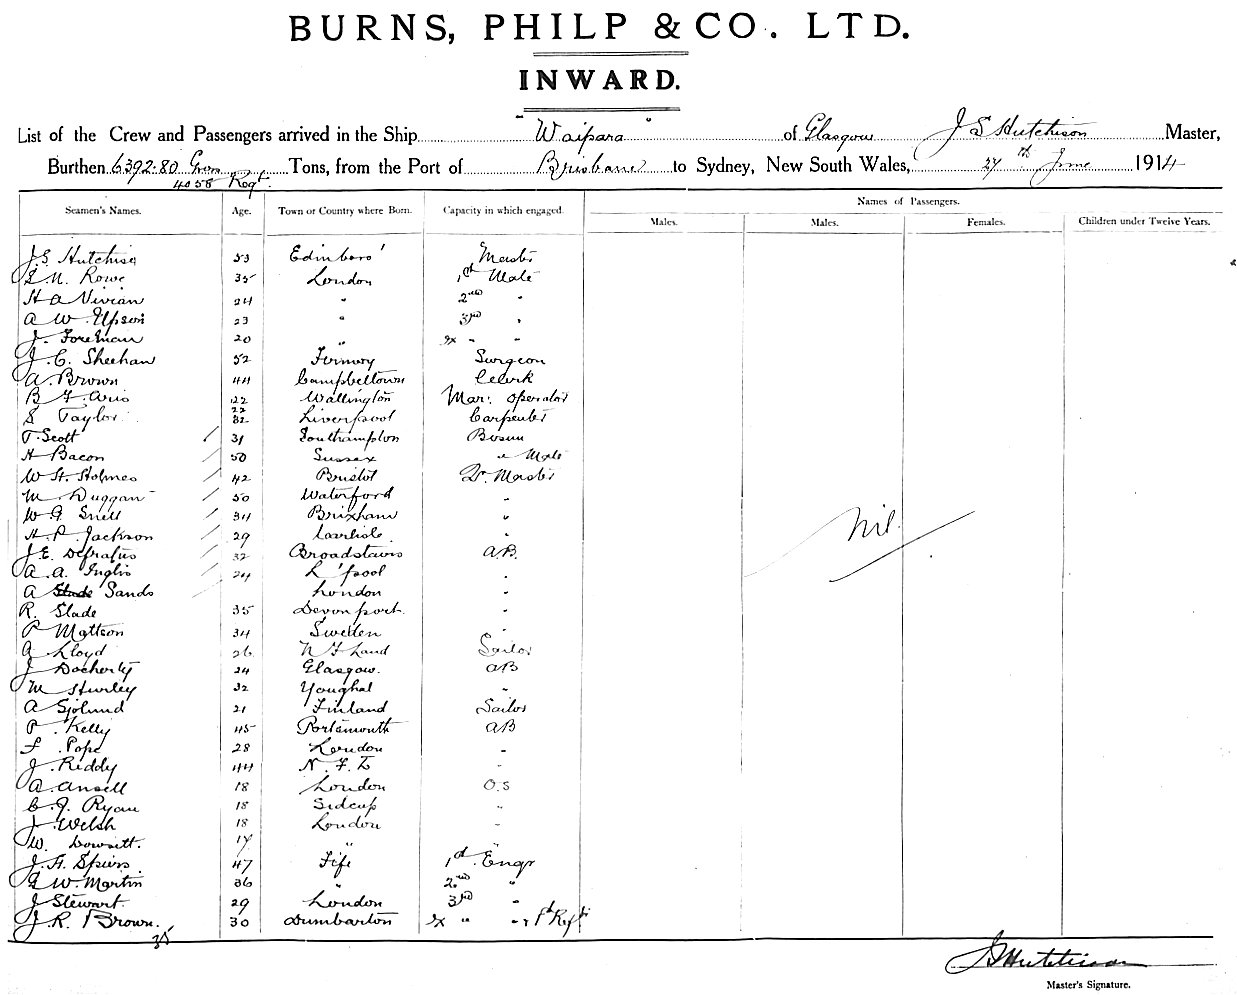 BURNS, PHILP & CO. LTD.
INWARD.
List of the Crew and Passengers arrived in the Ship "Waipara" of Glasgow J S Hutchison Master,
Burthen 6392.80 Gross Tons, from the Port of Brisbane to Sydney, New South Wales, 27th June 1914
4058 Regt.
Names of Passengers.
Seamen's Names. Age. Town or Country where Born. Capacity in which engaged. Males. Males. Females. Children under Twelve Years.
J.S. Hutchison 53 Edinboro' Master
N. Rowe 35 London 1st Mate
H A Vivian 24 " 2nd "
A W. Upson 23 " 3rd "
J. Foreman 20 " Ex " "
J. C. Sheehan 52 Fermoy Surgeon
A. Brown 44 Campbeltown Clerk
B F. Aris 22 Wallington Mar. operator
S Taylor 22 32 Liverpool Carpenter
T. Scott 31 Southampton Bosun
H Bacon 50 Sussex " Mate
W H. Holmes 42 Bristol Qr. Master
M. Duggan 50 Waterford "
W G Snell 34 Brixham "
H. P. Jackson 29 Carlisle "
J. E. Defratus 32 Broadstairs AB.
A. A. Inglis 24 L'pool "
A Slade Sands London "
R. Slade 35 Devonport. "
P Mattson 34 Sweden "
A Lloyd 26 N F Land Sailor
J Docherty 24 Glasgow. AB
M Hurley 32 Youghal "
A Sjolund 21 Finland Sailor
P. Kelly 45 Portsmouth AB
F. Pope 28 London "
J. Riddy 44 N. F. L "
A. Ansell 18 London O.S
C. J. Ryan 18 Sidcup "
J. Welsh 18 London "
W. Dowsett. 17 " "
J. H. Spiers 47 Fife 1st Engr
W. Martin 36 " 2nd "
J Stewart. 29 London 3rd "
J. R. Brown. 30 Dumbarton Ex " " &
35
Nil.
J S Hutchison
Master's Signature.